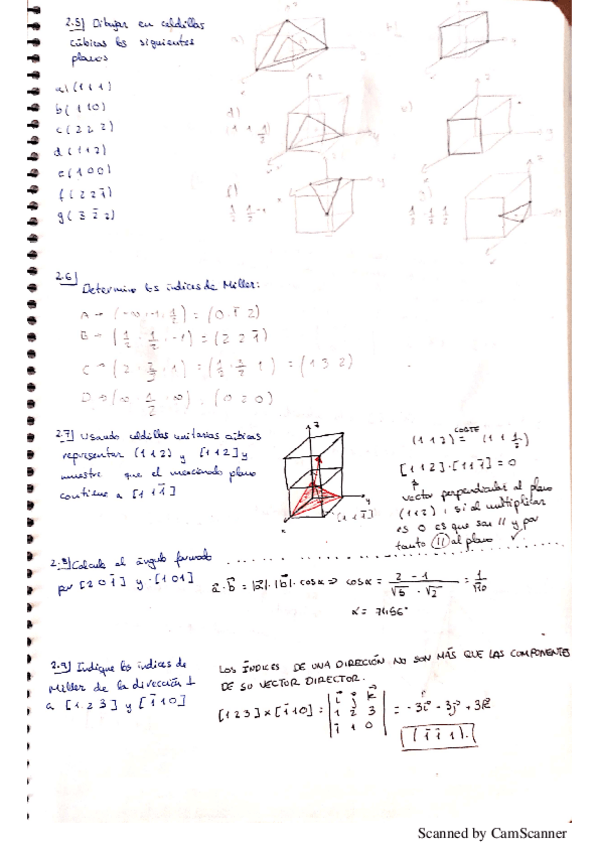 2.5) Dibujar en celdillas
cúbicas los siguientes
planos
a) (1 1 1)
b) (1 1 0)
c) (2 2 2)
d) (1 1 2)
e) (1 0 0)
f) (2 2 1̄)
g) (3 2̄ 2)
2.6)
Determine los índices de Miller:
B → (1/2 · 1/2 · -1) = (2 2 1̄)
= (1 3 2)
2.7) Usando celdillas unitarias cúbicas
representar (1 1 2) y [1 1 2] y
muestre que el mencionado plano
contiene a [1 1 1̄]
z
y
x
[1 1 1̄]
CORTE
(1 1 2) = (1 1 1/2)
[1 1 2] · [1 1 1̄] = 0
vector perpendicular al plano
(1 1 2), si al multiplicar
es 0 es que son // y por
tanto // al plano
2.8) Calcule el ángulo formado
por [2 0 1̄] y [1 0 1]
a · b = |a| · |b| · cos α ⇒ cos α = 2 - 1 / √5 · √2 = 1/√10
α = 71.56°
2.9) Indique los índices de
Miller de la dirección ⊥
a [1 2 3] y [1̄ 1 0]
LOS ÍNDICES DE UNA DIRECIÓN NO SON MÁS QUE LAS COMPONENTES
DE SU VECTOR DIRECTOR.
i j k
[1 2 3] × [1̄ 1 0] = 1 2 3 = -3i - 3j + 3k
1̄ 1 0
(1̄ 1̄ 1).
Scanned by CamScanner